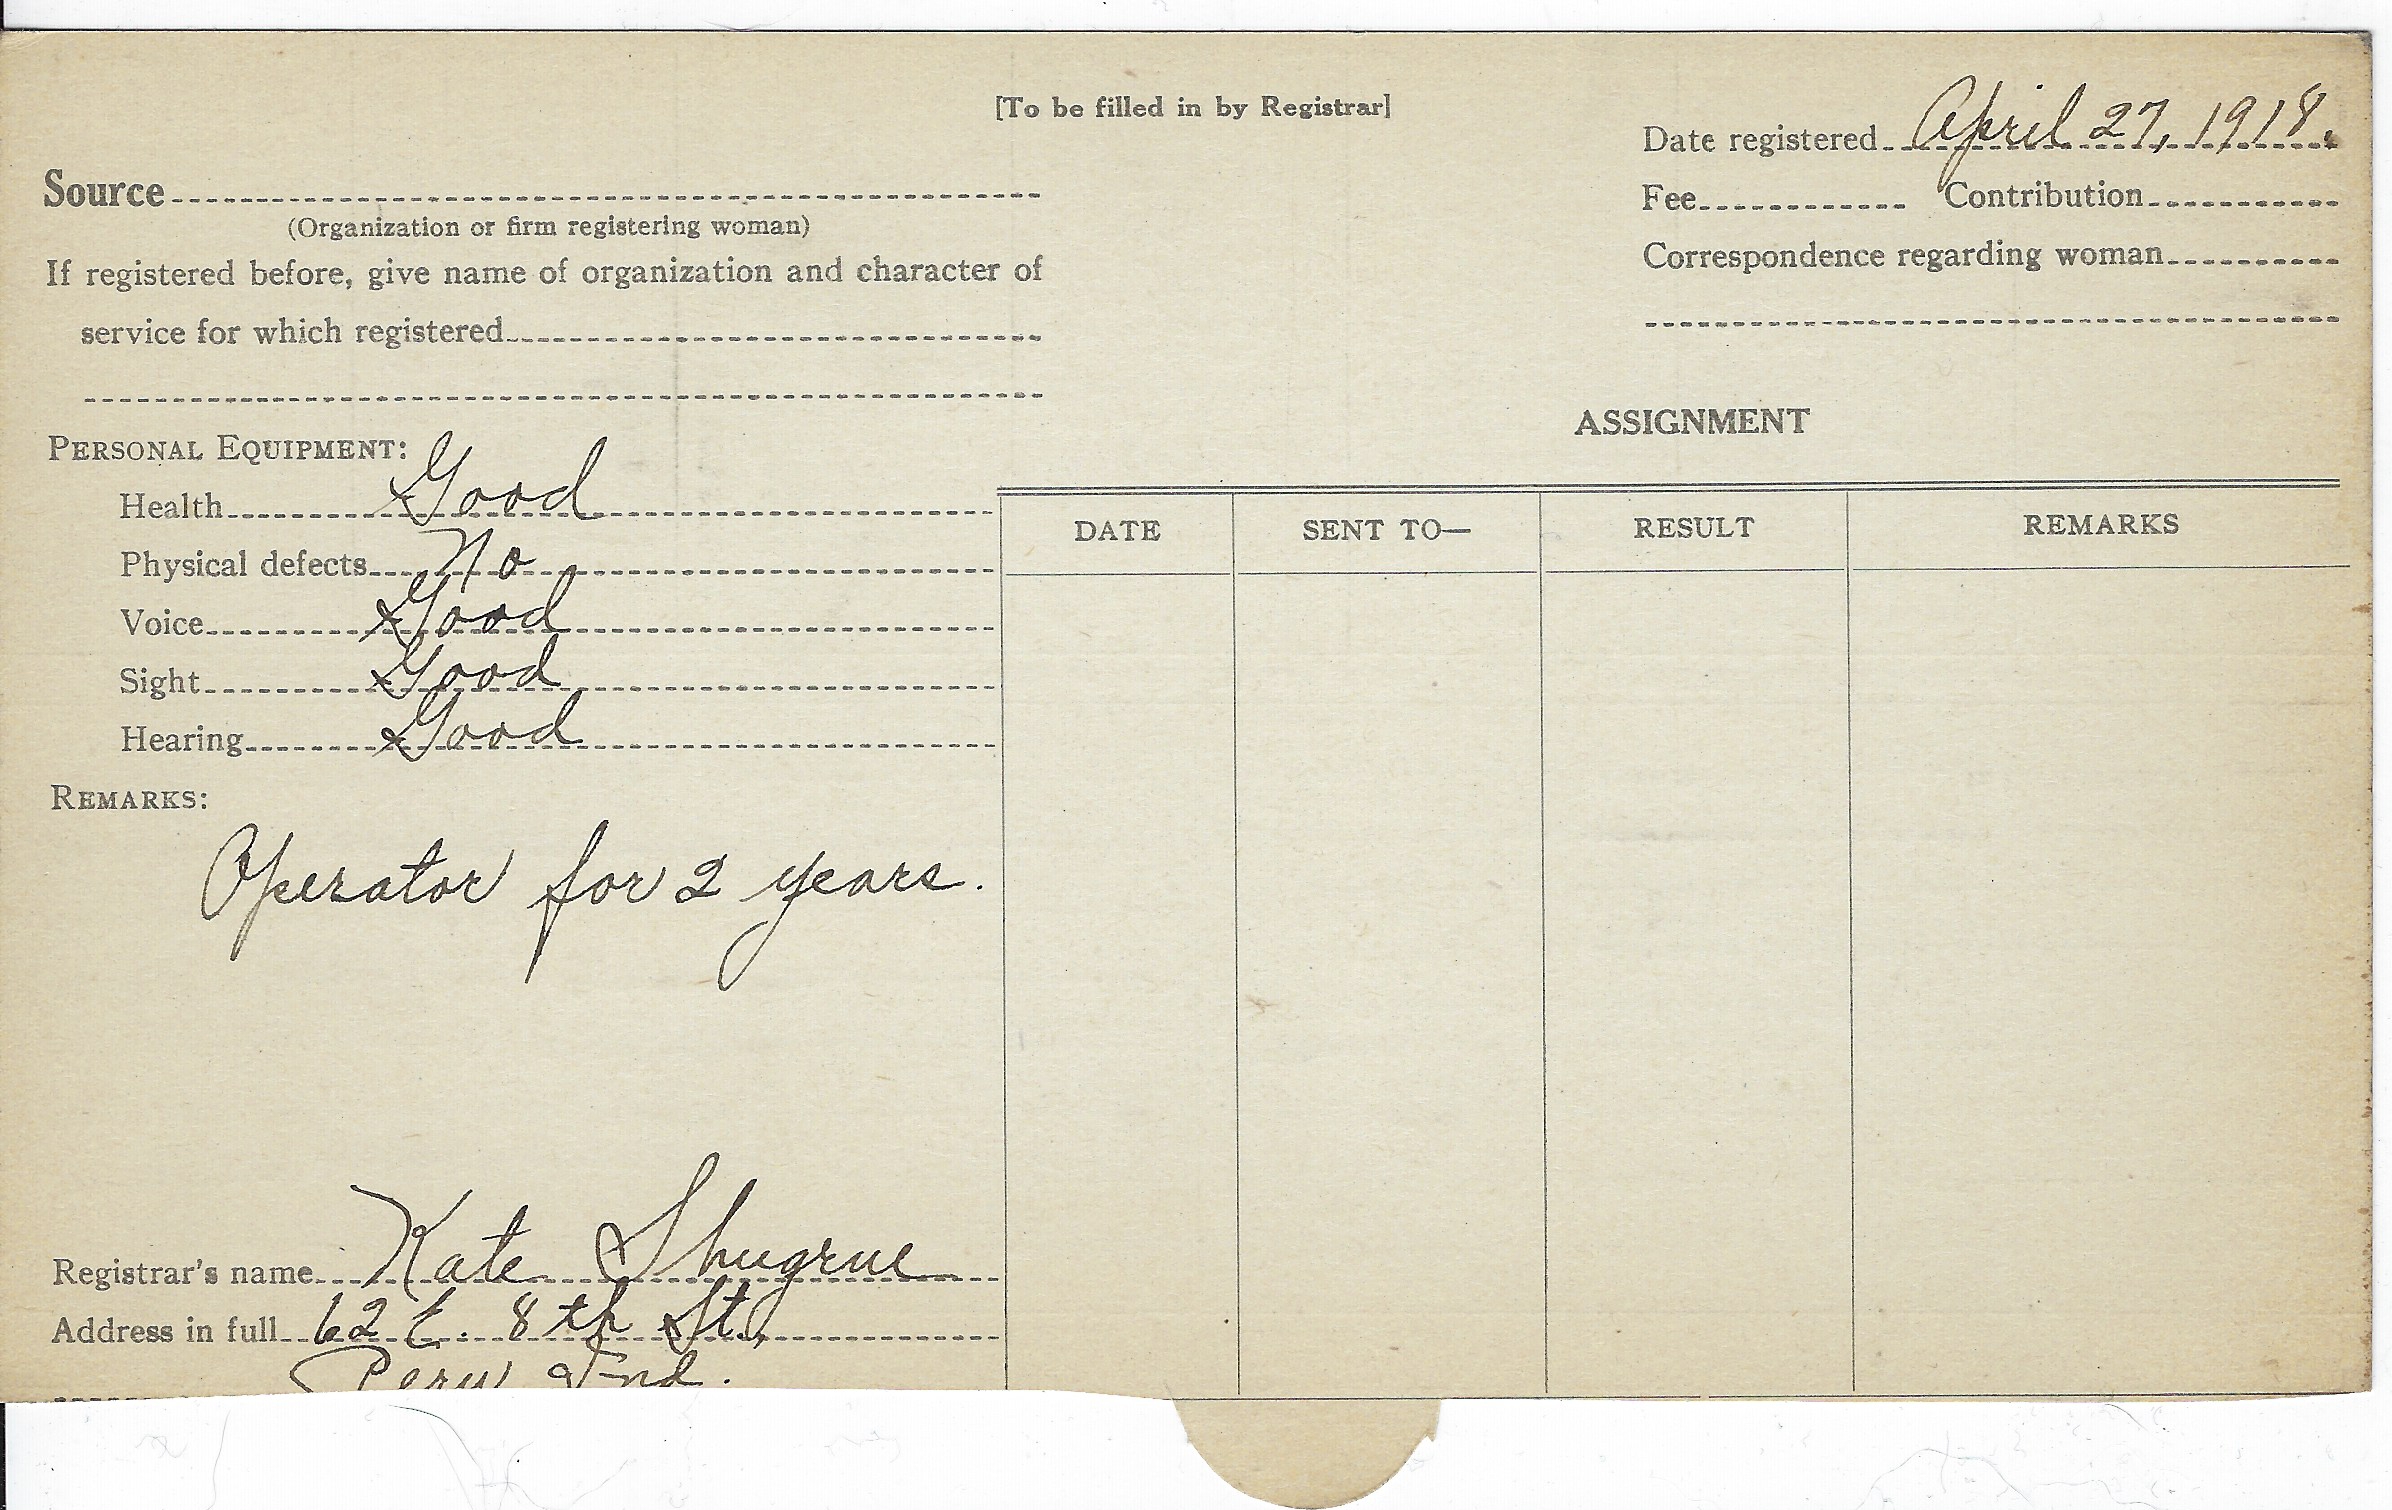 [To be filled in by Registrar]
Date registered April 27, 1918.
Source
(Organization or firm registering woman)
Fee Contribution
If registered before, give name of organization and character of
service for which registered
Correspondence regarding woman
ASSIGNMENT
PERSONAL EQUIPMENT:
Health Good
Physical defects No
Voice Good
Sight Good
Hearing Good
DATE SENT TO— RESULT REMARKS
REMARKS:
Operator for 2 years.
Registrar's name Kate Shugrue
Address in full 62 E. 8th St.,
Peru Ind.